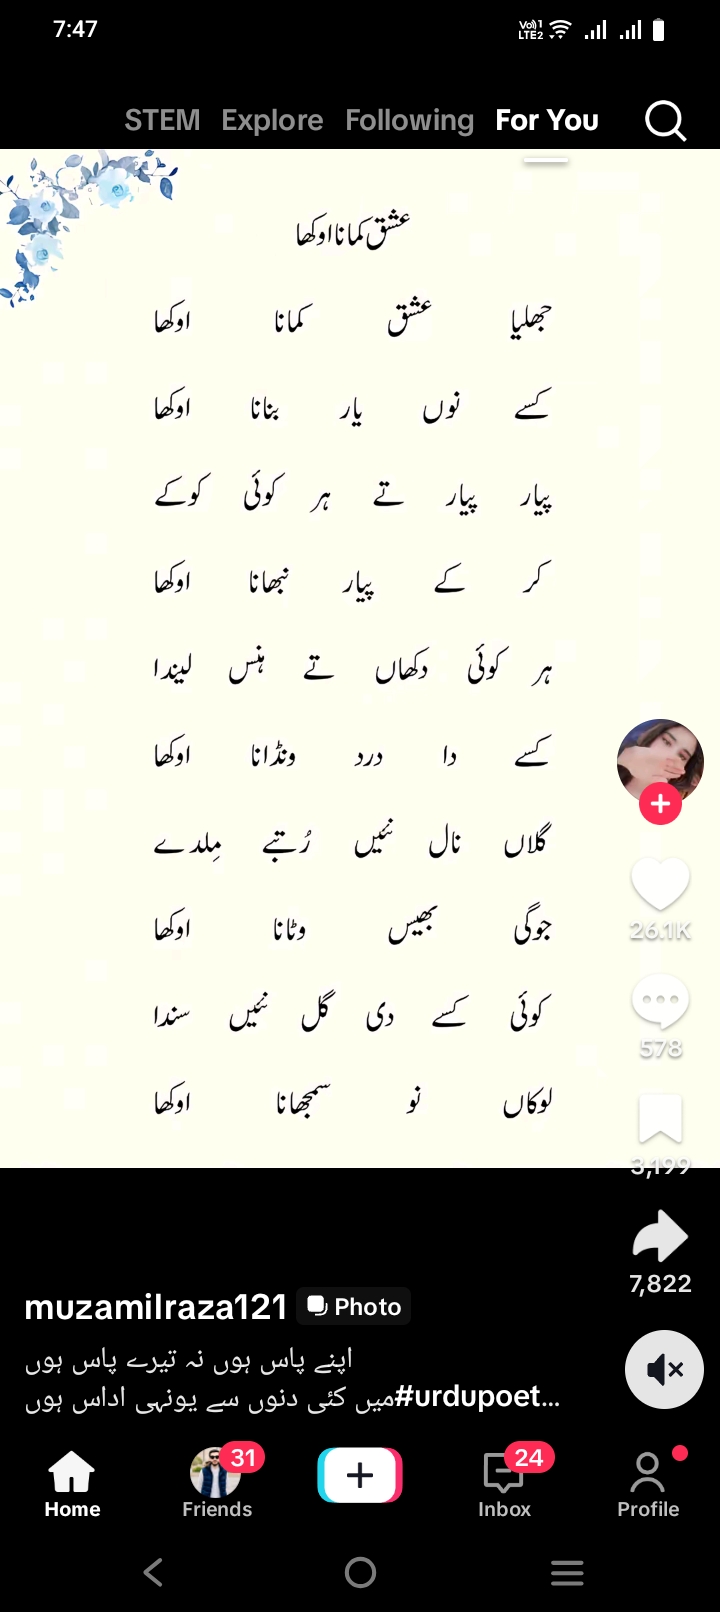 7:47
Vo)) 1
LTE2
STEM Explore Following For You
عشق کمانا اوکھا
جھلیا عشق کمانا اوکھا
کسے نوں یار بنانا اوکھا
پیار پیار تے ہر کوئی کوکے
کر کے پیار نبھانا اوکھا
ہر کوئی دکھاں تے ہنس لیندا
کسے دا درد ونڈانا اوکھا
گلاں نال نئیں رُتبے مِلدے
جوگی بھیس وٹانا اوکھا
کوئی کسے دی گل نئیں سندا
لوکاں نو سمجھانا اوکھا
26.1K
578
3,199
7,822
muzamilraza121 Photo
اپنے پاس ہوں نہ تیرے پاس ہوں
میں کئی دنوں سے یونہی اداس ہوں#urdupoet...
31
24
Home Friends Inbox Profile